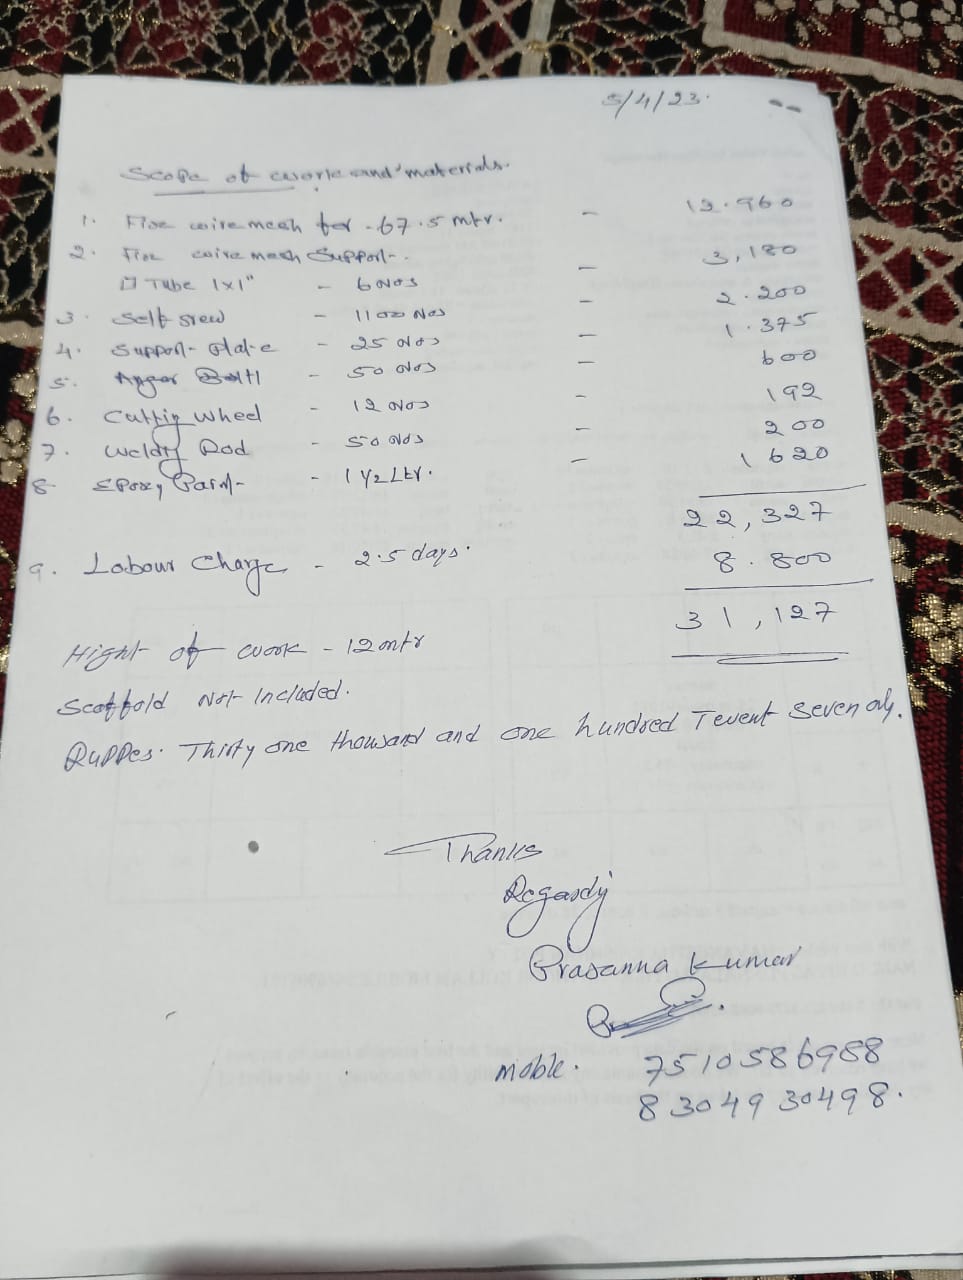 5/4/23.
Scope of work and materials.
1. Five wire mesh for - 67.5 mtr. - 12.960
2. Five wire mesh Support-. - 3,180
□ Tube 1x1" - 6 Nos
3. Self srew - 1100 Nos - 2.200
4. Support- Plate - 25 Nos - 1.375
5. Anger Boltl - 50 Nos - 600
6. Cuttig Wheel - 12 Nos - 192
7. Weldig Rod - 50 Nos - 200
8. Epoxy Paint - 1 1/2 Ltr. - 1620
22,327
9. Labour Charge - 2.5 days. 8.800
31,127
Hight of work - 12 mtr
Scaffold Not Included.
Ruppes. Thirty one thousand and one hundred Tewent Seven oly.
Thanks
Regards
Prasanna Kumar
Moble. 7510586988
8304930498.